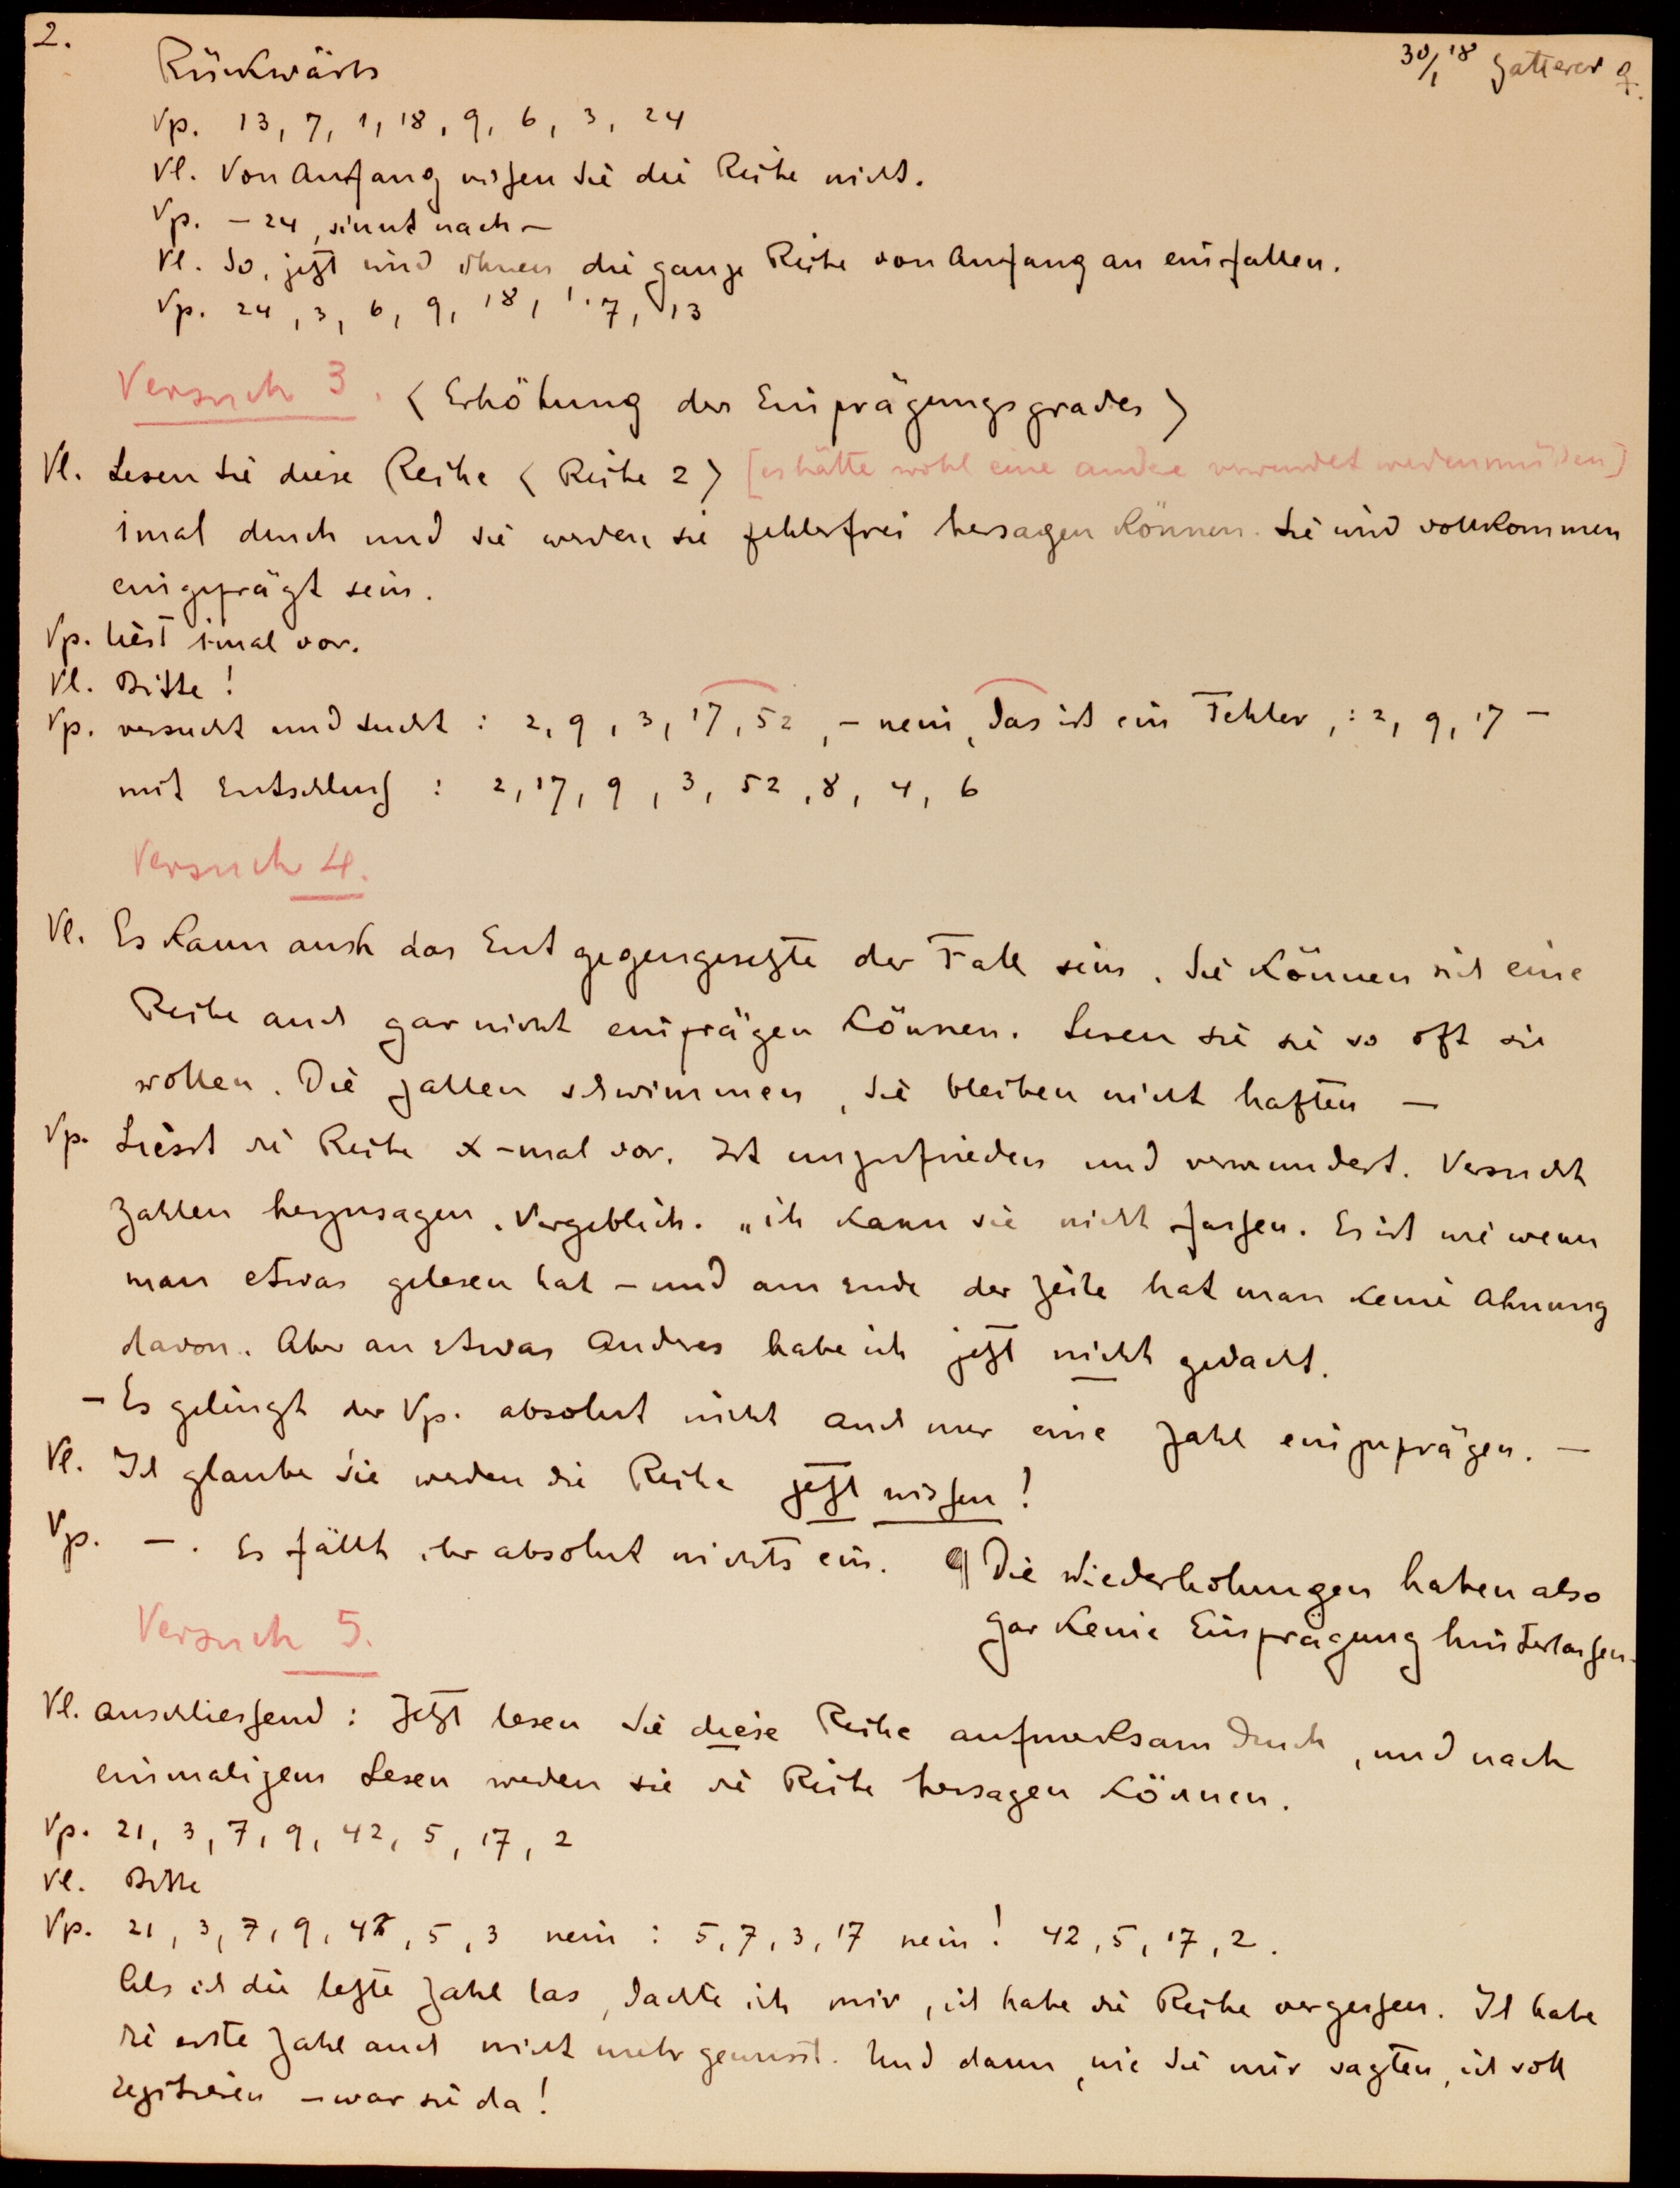 2.
30/1 18 Gatterer G.
Rückwärts
Vp. 13, 7, 1, 18, 9, 6, 3, 24
Vl. Von Anfang wissen Sie die Reihe nicht.
Vp. – 24, sinnt nach –
Vl. So, jetzt wird ihnen die ganze Reihe von Anfang an einfallen.
Vp. 24, 3, 6, 9, 18, 1, 7, 13
Versuch 3. < Erhöhung des Einprägungsgrades >
Vl. Lesen Sie diese Reihe < Reihe 2 > [es hätte wohl eine andere verwendet werden müssen]
1mal durch und Sie werden sie fehlerfrei hersagen können. Sie wird vollkommen
eingeprägt sein.
Vp. liest 1mal vor.
Vl. Bitte!
Vp. versucht und sucht : 2, 9, 3, 17, 52, – nein, das ist ein Fehler, : 2, 9, 17 –
mit Entschluss : 2, 17, 9, 3, 52, 8, 4, 6
Versuch 4.
Vl. Es kann auch das Entgegengesetzte der Fall sein. Sie können sich eine
Reihe auch gar nicht einprägen können. Lesen Sie sie so oft sie
wollen. Die Zahlen schwimmen, sie bleiben nicht haften –
Vp. Liesst die Reihe x-mal vor. Ist unzufrieden und verwundert. Versucht
Zahlen herzusagen. Vergeblich. „ich kann sie nicht fassen. Es ist wie wenn
man etwas gelesen hat – und am Ende der Zeile hat man keine Ahnung
davon. Aber an etwas Anderes habe ich jetzt nicht gedacht.
– Es gelingt der Vp. absolut nicht auch nur eine Zahl einzuprägen. –
Vl. Ich glaube Sie werden die Reihe jetzt wissen!
Vp. –. Es fällt ihr absolut nichts ein. ¶ Die Wiederholungen haben also
gar keine Einprägung hinterlassen.
Versuch 5.
Vl. anschliessend : Jetzt lesen Sie diese Reihe aufmerksam durch, und nach
einmaligem Lesen werden sie die Reihe hersagen können.
Vp. 21, 3, 7, 9, 42, 5, 17, 2
Vl. Bitte
Vp. 21, 3, 7, 9, 42, 5, 3 nein : 5, 7, 3, 17 nein! 42, 5, 17, 2.
Als ich die letzte Zahl las, dachte ich mir, ich habe die Reihe vergessen. Ich habe
die erste Zahl auch nicht mehr gewusst. Und dann, wie Sie mir sagten, ich soll
rezitieren – war sie da!